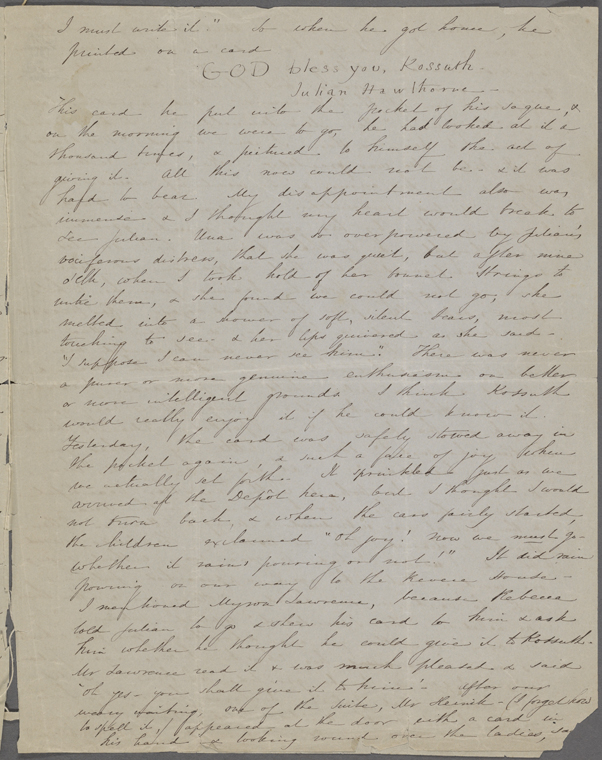 I must write it." So when he got home, he
printed on a card
GOD bless you, Kossuth.
Julian Hawthorne —
This card he put into the pocket of his saque, &
on the morning we were to go, he had looked at it a
thousand times, & pictured to himself the act of
giving it. All this now could not be — & it was
hard to bear. My disappointment also was
immense & I thought my heart would break to
see Julian. Una was so overpowered by Julian's
vociferous distress, that she was quiet, but after nine
o'clk, when I took hold of her bonnet strings to
untie them, & she found we could not go, she
melted into a shower of soft, silent tears, most
touching to see — & her lips quivered as she said —
"I suppose I can never see him". There was never
a purer or more genuine enthusiasm on better
or more intelligent grounds. I think Kossuth
would really enjoy it if he could know it.
Yesterday, the card was safely stowed away in
the pocket again, & such a face of joy when
we actually set forth. It sprinkled just as we
arrived at the Depôt here, but I thought I would
not turn back, & when the cars fairly started,
the children exclaimed "Oh joy! now we must go —
whether it rains pouring or not!" It did rain
pouring on our way to the Revere House —
I mentioned Myron Lawrence, because Rebecca
told Julian to go & shew his card to him & ask
him whether he thought he could give it to Kossuth.
Mr Lawrence read it & was much pleased & said
"Oh yes — you shall give it to him" — After our
weary waiting, one of the suite, Mr (I forget how
to spell it,) appeared at the door with a card in
his hand & looking round over the ladies,